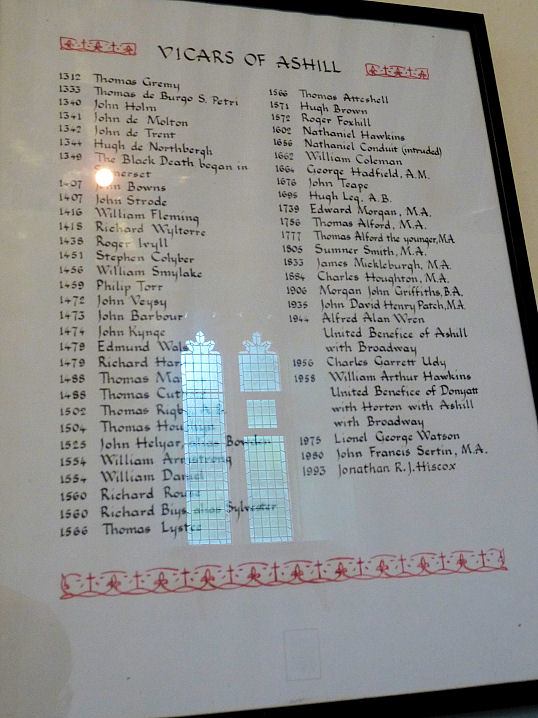 VICARS OF ASHILL
1312 Thomas Gremy
1333 Thomas de Burgo S. Petri
1340 John Holm
1341 John de Molton
1342 John de Trent
1344 Hugh de Northbergh
1349 The Black Death began in
Somerset
1407 John Bowns
1407 John Strode
1416 William Fleming
1418 Richard Wyltorre
1438 Roger Ivyll
1451 Stephen Colyber
1456 William Smylake
1459 Philip Torr
1472 John Veysy
1473 John Barbour
1474 John Kynge
1479 Edmund
1479 Richard
1488 Thomas
1488 Thomas
1502 Thomas Rigby A.B.
1504 Thomas
1525 John Helyar, alias
1554 William Armstrong
1554 William Daniel
1560 Richard
1560 Richard Biys alias Sylvester
1566 Thomas Lyster
1566 Thomas Atteshell
1571 Hugh Brown
1572 Roger Foxhill
1602 Nathaniel Hawkins
1656 Nathaniel Conduit (intruded)
1662 William Coleman
1664 George Hadfield, A.M.
1676 John Teape
1695 Hugh Leg, A.B.
1739 Edward Morgan, M.A.
1756 Thomas Alford, M.A.
1777 Thomas Alford the younger, M.A
1805 Sumner Smith, M.A.
1833 James Mickleburgh, M.A.
1884 Charles Houghton, M.A.
1906 Morgan John Griffiths, B.A.
1935 John David Henry Patch, M.A.
1944 Alfred Alan Wren
United Benefice of Ashill
with Broadway
1956 Charles Garrett Udy
1958 William Arthur Hawkins
United Benefice of Donyatt
with Horton with Ashill
with Broadway
1975 Lionel George Watson
1980 John Francis Sertin, M.A.
1993 Jonathan R.J. Hiscox